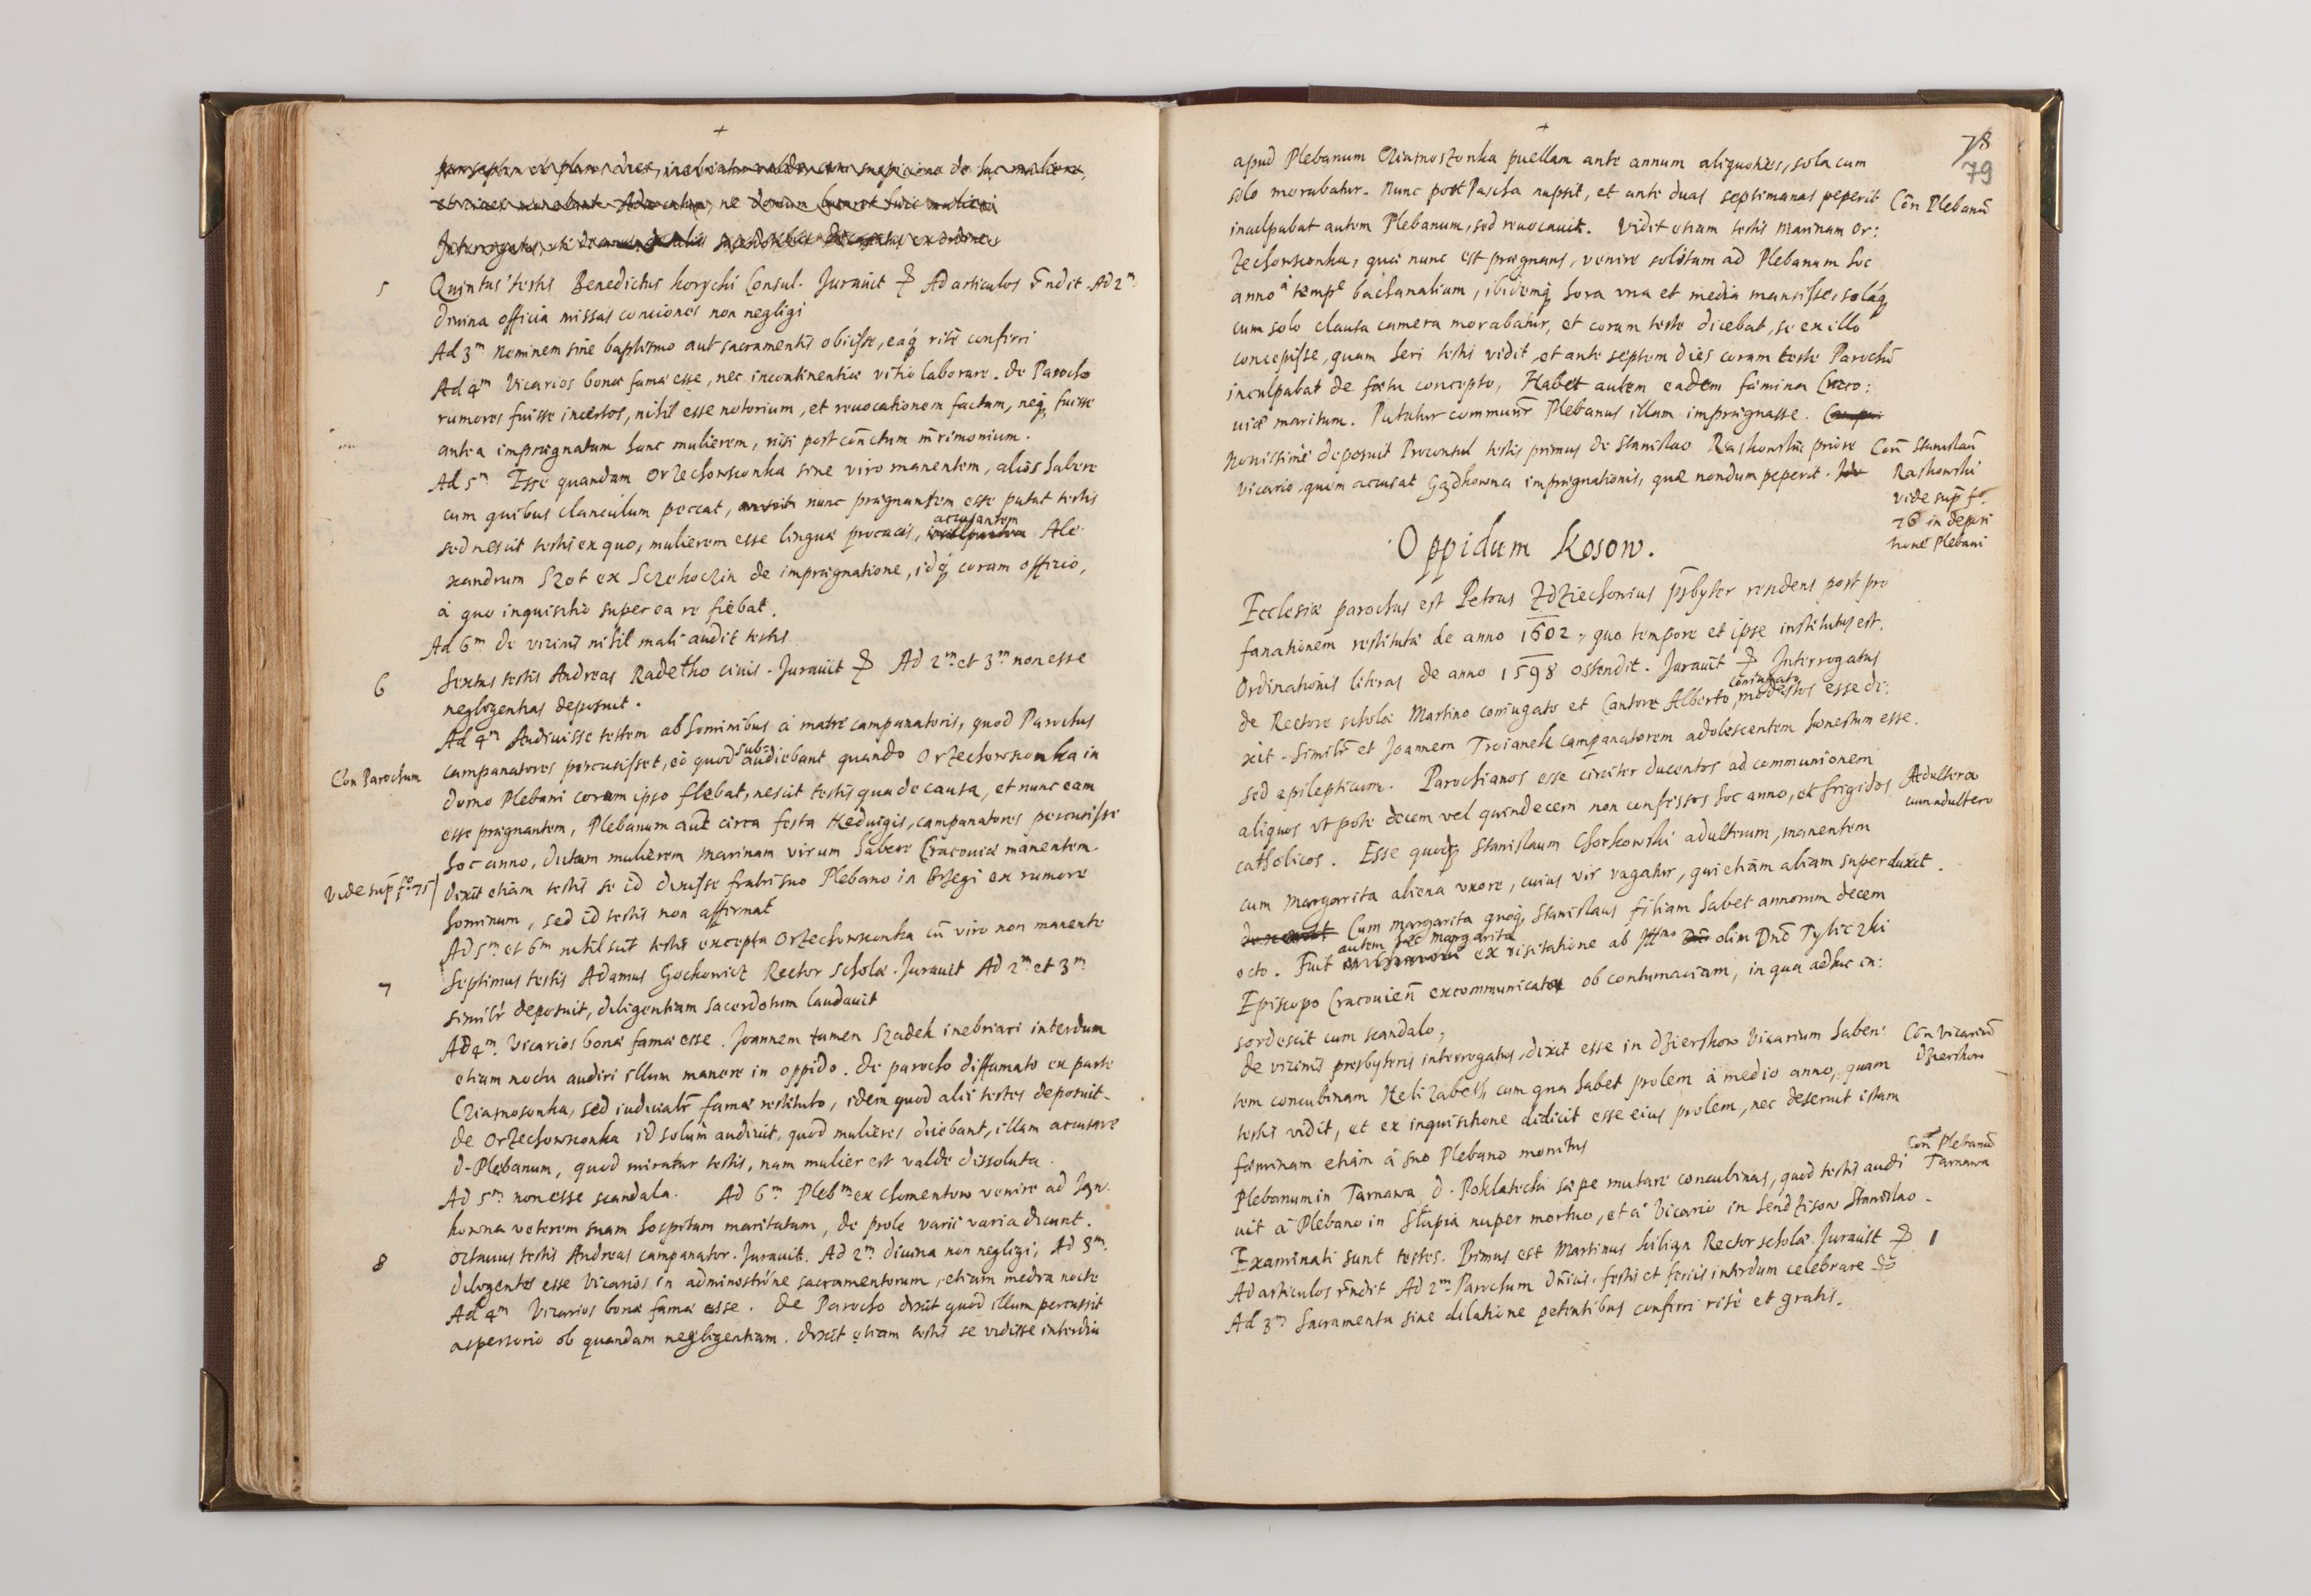 +
5 Quintus testis Benedictus korychi Consul. Jurauit Ad articulos rndit. Ad 2m
diuina officia missas conciones non negligi
Ad 3m Neminem sine baptismo aut sacramentis obiisse, eaq rite conferri
Ad 4m Vicarios bonæ famæ esse, nec incontinentiæ vitio laborare. De Parocho
rumores fuisse incertos, nihil esse notorium, et reuocationem factam, neq fuisse
antea imprægnatam hanc mulierem, nisi post conctum mrimonium.
Ad 5m Esse quandam Orzechowsconka sine viro manentem, alias habere
cum quibus clanculum peccat, nunc prægnantem esse putat testis
sed nescit testis ex quo, mulierem esse linguæ procacis, accusantem Ale
xandrum Szot ex Sczekoczin de imprægnatione, idq coram officio,
à quo inquisitio super ea re fiebat.
Ad 6m de vicinis nihil mali audit testis
6 Sextus testis Andreas Radetho ciuis. Jurauit Ad 2m et 3m non esse
negligentias deposuit.
Ad 4m Audiuisse testem ab hominibus à matre campanatoris, quod Parochus
Con Parochum
campanatores percussisset, eò quod sub=audiebant quando Orzechowsconka in
domo Plebani coram ipso flebat, nescit testis qua de causa, et nunc eam
esse prægnantem, Plebanum aut circa festa Heduigis, campanatores percussisse
hoc anno, dictam mulierem Marinam virum habere Cracouiæ manentem.
Vide sup fo 75
dixit etiam testis se id dixisse fratri suo Plebano in Brzegi ex rumore
hominum, sed id testis non affirmat
Ad 5m et 6m nihil scit testis excepta Orzechowsconka cu viro non manente
7 Septimus testis Adamus Gochowicz Rector scholæ. Jurauit Ad 2m et 3m
similr deposuit, diligentiam sacerdotum laudauit
Ad 4m. Vicarios bonæ famæ esse. Joannem tamen Szadek inebriari interdum
etiam noctu audiri illum manere in oppido. De parocho diffamato ex parte
Cziaposonka, sed iudicialr famæ restituto, idem quod alii testes deposuit.
de Orzechowsconka id solum audiuit, quod mulieres dicebant, illam accusare
d. Plebanum, quod miratur testis, nam mulier est valde dissoluta.
Ad 5m non esse scandala. Ad 6m Plebm ex Chomentow venire ad Jgn
kowna veterem suam hospitam maritatam, de prole varii varia dicunt.
8 Octauus testis Andreas campanator. Jurauit. Ad 2m diuina non negligi, Ad 3m.
diligentes esse Vicarios in adminostrône sacramentorum, etiam media nocte
Ad 4m Vicarios bonæ famæ esse. De Parocho dixit quod illum percussit
aspersorio ob quandam negligentiam. dixit etiam testis se vidisse interdiu
+
78
79
apud Plebanum Cziaposzonka puellam ante annum aliquoties, sola cum
solo morabatur. Nunc post Pascha nupsit, et ante duas septimanas peperit
Con Plebanu
inculpabat autem Plebanum, sed reuocauit. Vidit etiam testis Marinam Or:
zechowsconka, quæ nunc est prægnans, venire solitam ad Plebanum hoc
anno à tempe bachanalium, ibidemq hora vna et media mansisse, solaq
cum solo clausa camera morabatur, et coram teste dicebat, se ex illo
concepisse, quam heri testis vidit, et ante septem dies coram teste Parochu
inculpabat de fœtu concepto, Habet autem eadem fæmina Craco:
uiæ maritum. Putatur communr Plebanus illam imprægnasse.
Nouissimè deposuit Proconsul testis primus de Stanislao Raskowskie priore
Vicario, quem accusat Gzdkowna imprægnationis, quæ nondum peperit.
Con Stanislau
Raskowski
vide sup fo.
76 in deposi
tione Plebani
Oppidum Kosow.
Ecclesiæ parochus est Petrus Zdziechouius psbyter residens post pro
fanationem restitutæ de anno 1602, quo tempore et ipse institutus est.
Ordinationis literas de anno 1598 ostendit. Jurauit Interrogatus
de Rectore scholæ Martino coniugato et Cantore Alberto coniugato, modestos esse di:
xit. Similr et Joannem Troianek campanatorem adolescentem honestum esse.
sed epilepticum. Parochianos esse circiter ducentos ad communionem
aliquos vt pote decem vel quindecem non confessos hoc anno, et frigidos
catholicos. Esse quoq Stanislaum Chorkowski adulterum, manentem
Adultera
cum adultero
cum Margarita aliena vxore, cuius vir vagatur, qui etiam aliam superduxit.
Cum Margarita quoq Stanislaus filiam habet annorum decem
octo. Fuit autem hæc Margarita ex visitatione ab Illmo olim Dno Tyliczki
Episcopo Cracouien excommunicata ob contumaciam, in qua adhuc in:
sordescit cum scandalo,
de vicinis presbyteris interrogatus, dixit esse in Dzierskow Vicarium haben
Con Vicariu
Dzierskow
tem concubinam Helizabeth, cum qua habet prolem à medio anno, quam
testis vidit, et ex inquisitione didicit esse eius prolem, nec deseruit istam
fæminam etiam à suo Plebano monitus
Plebanum in Tarnawa d. Poklatecki sæpe mutare concubinas, quod testis audi
Con Plebanu
Tarnawa
uit à Plebano in Slupia nuper mortuo, et à Vicario in Sendzisow Stanislao.
Examinati sunt testes. Primus est Martinus kilian Rector scholæ. Jurauit 1
Ad articulos rndit Ad 2m Parochum dnicis, festis et feriis interdum celebrare
Ad 3m Sacramenta sine dilatione petentibus conferri ritè et gratis.